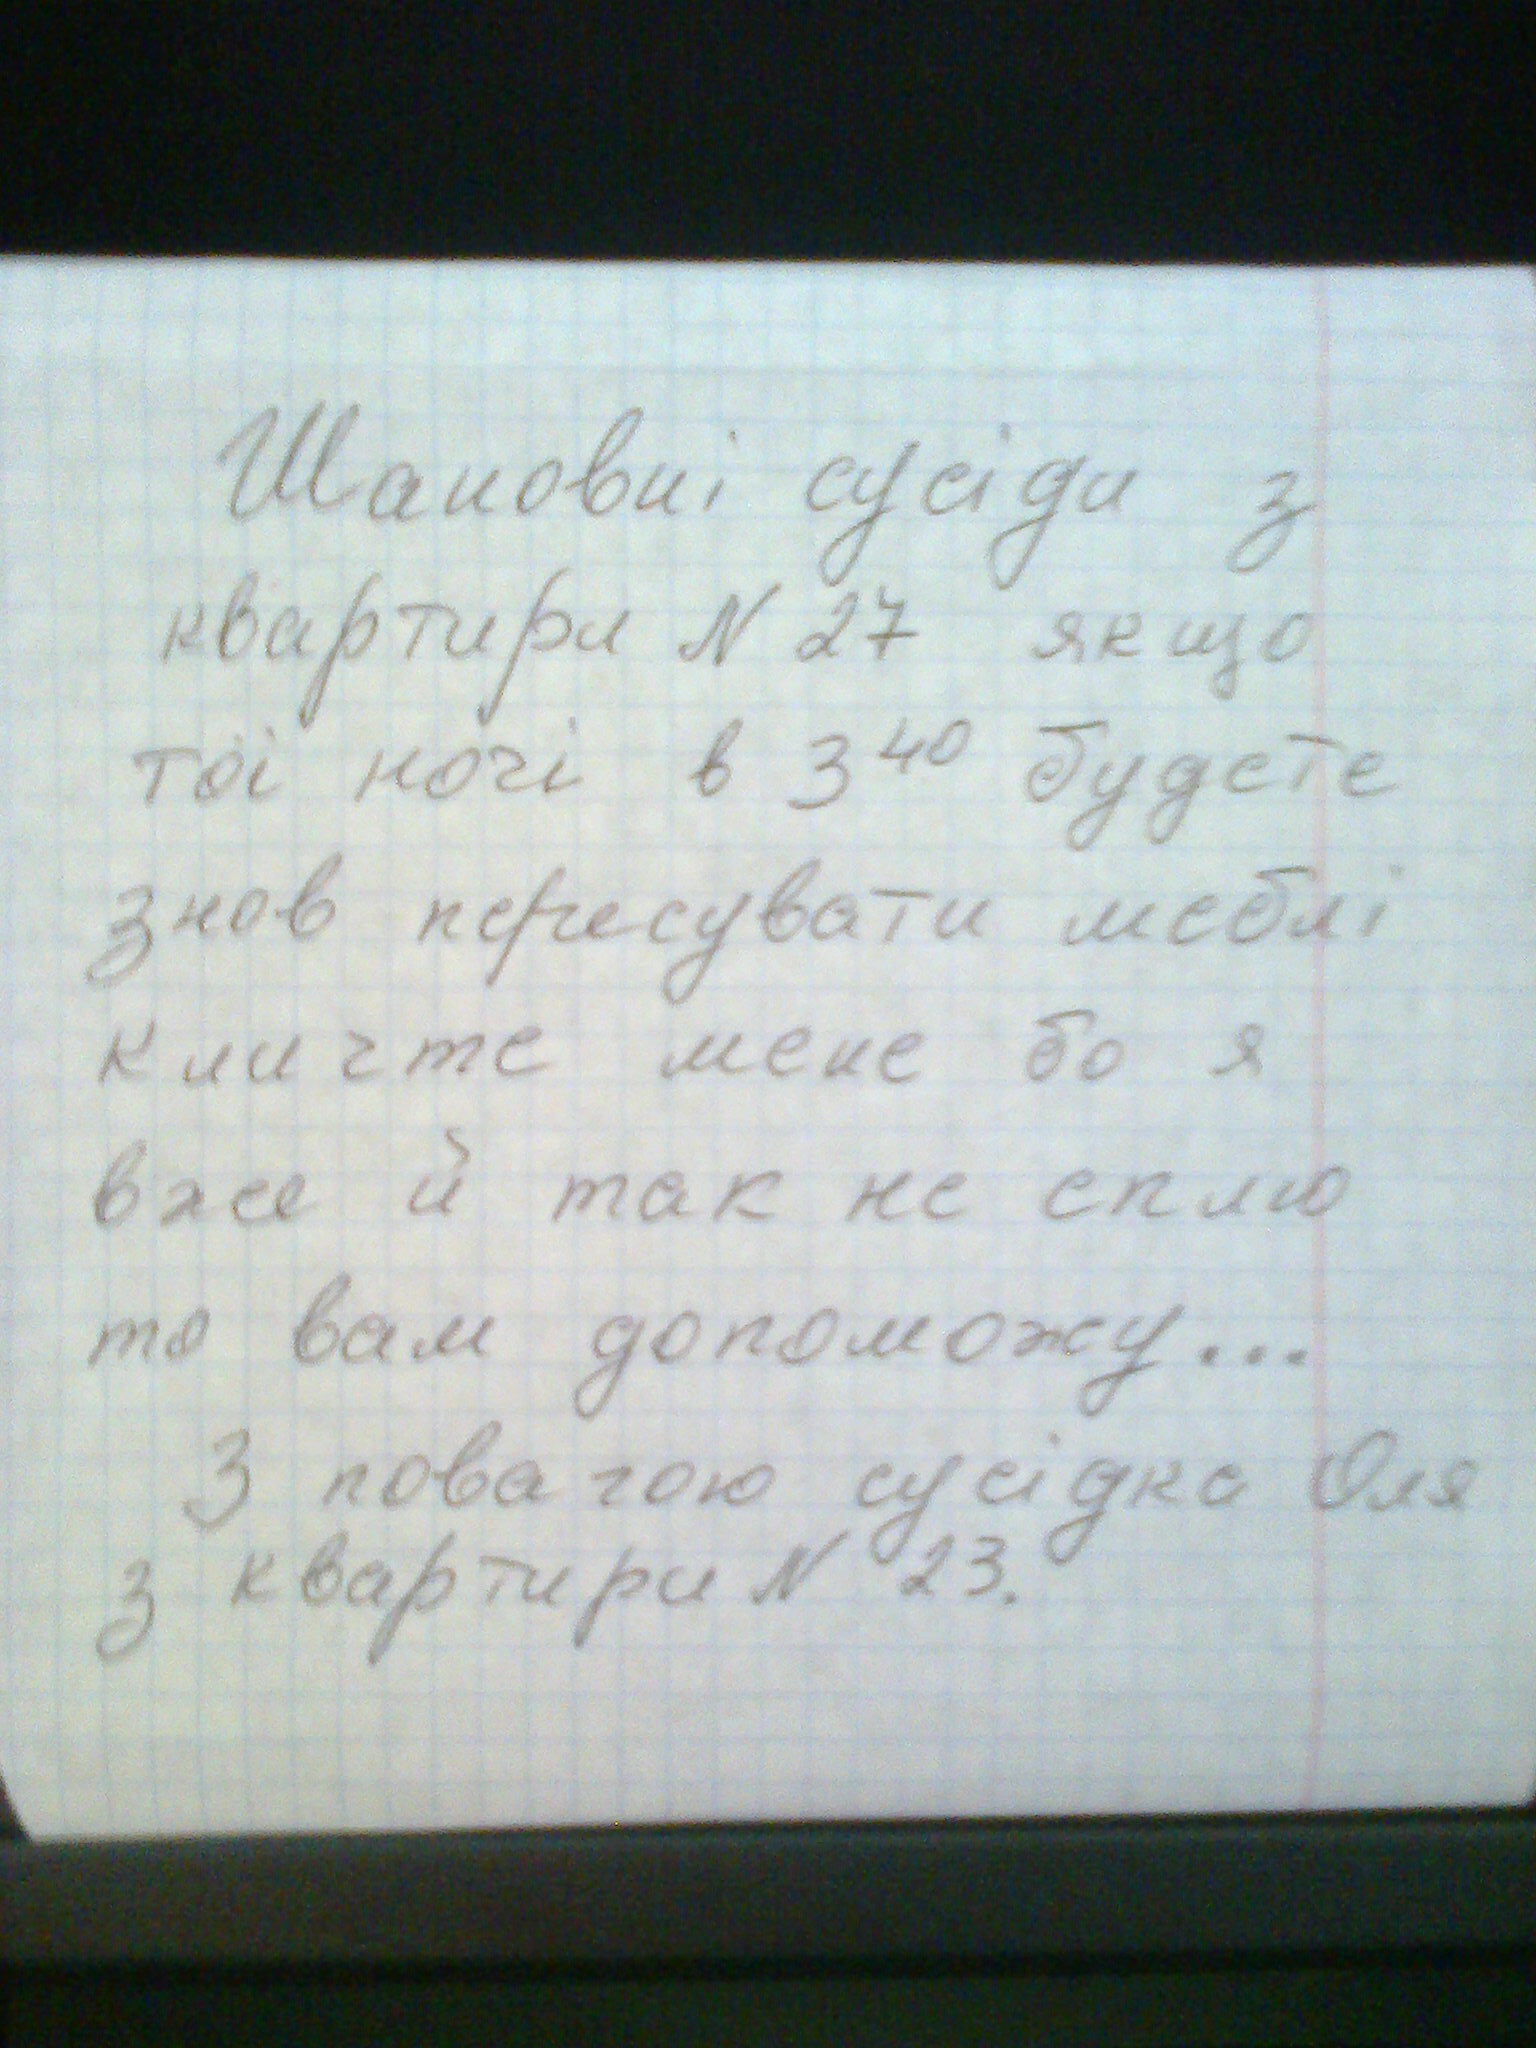 Шановні сусіди з
квартири N 27 якщо
тої ночі в 3⁴⁰ будете
знов пересувати меблі
кличте мене бо я
вже й так не сплю
то вам допоможу...
З повагою сусідка Оля
з квартири N 23.